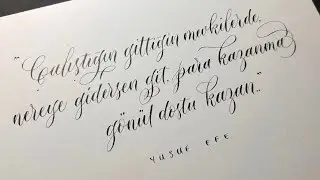 "Çalıştığın gittiğin mevkilerde,
nereye gidersen git, para kazanma
gönül dostu kazan."
YUSUF EFE